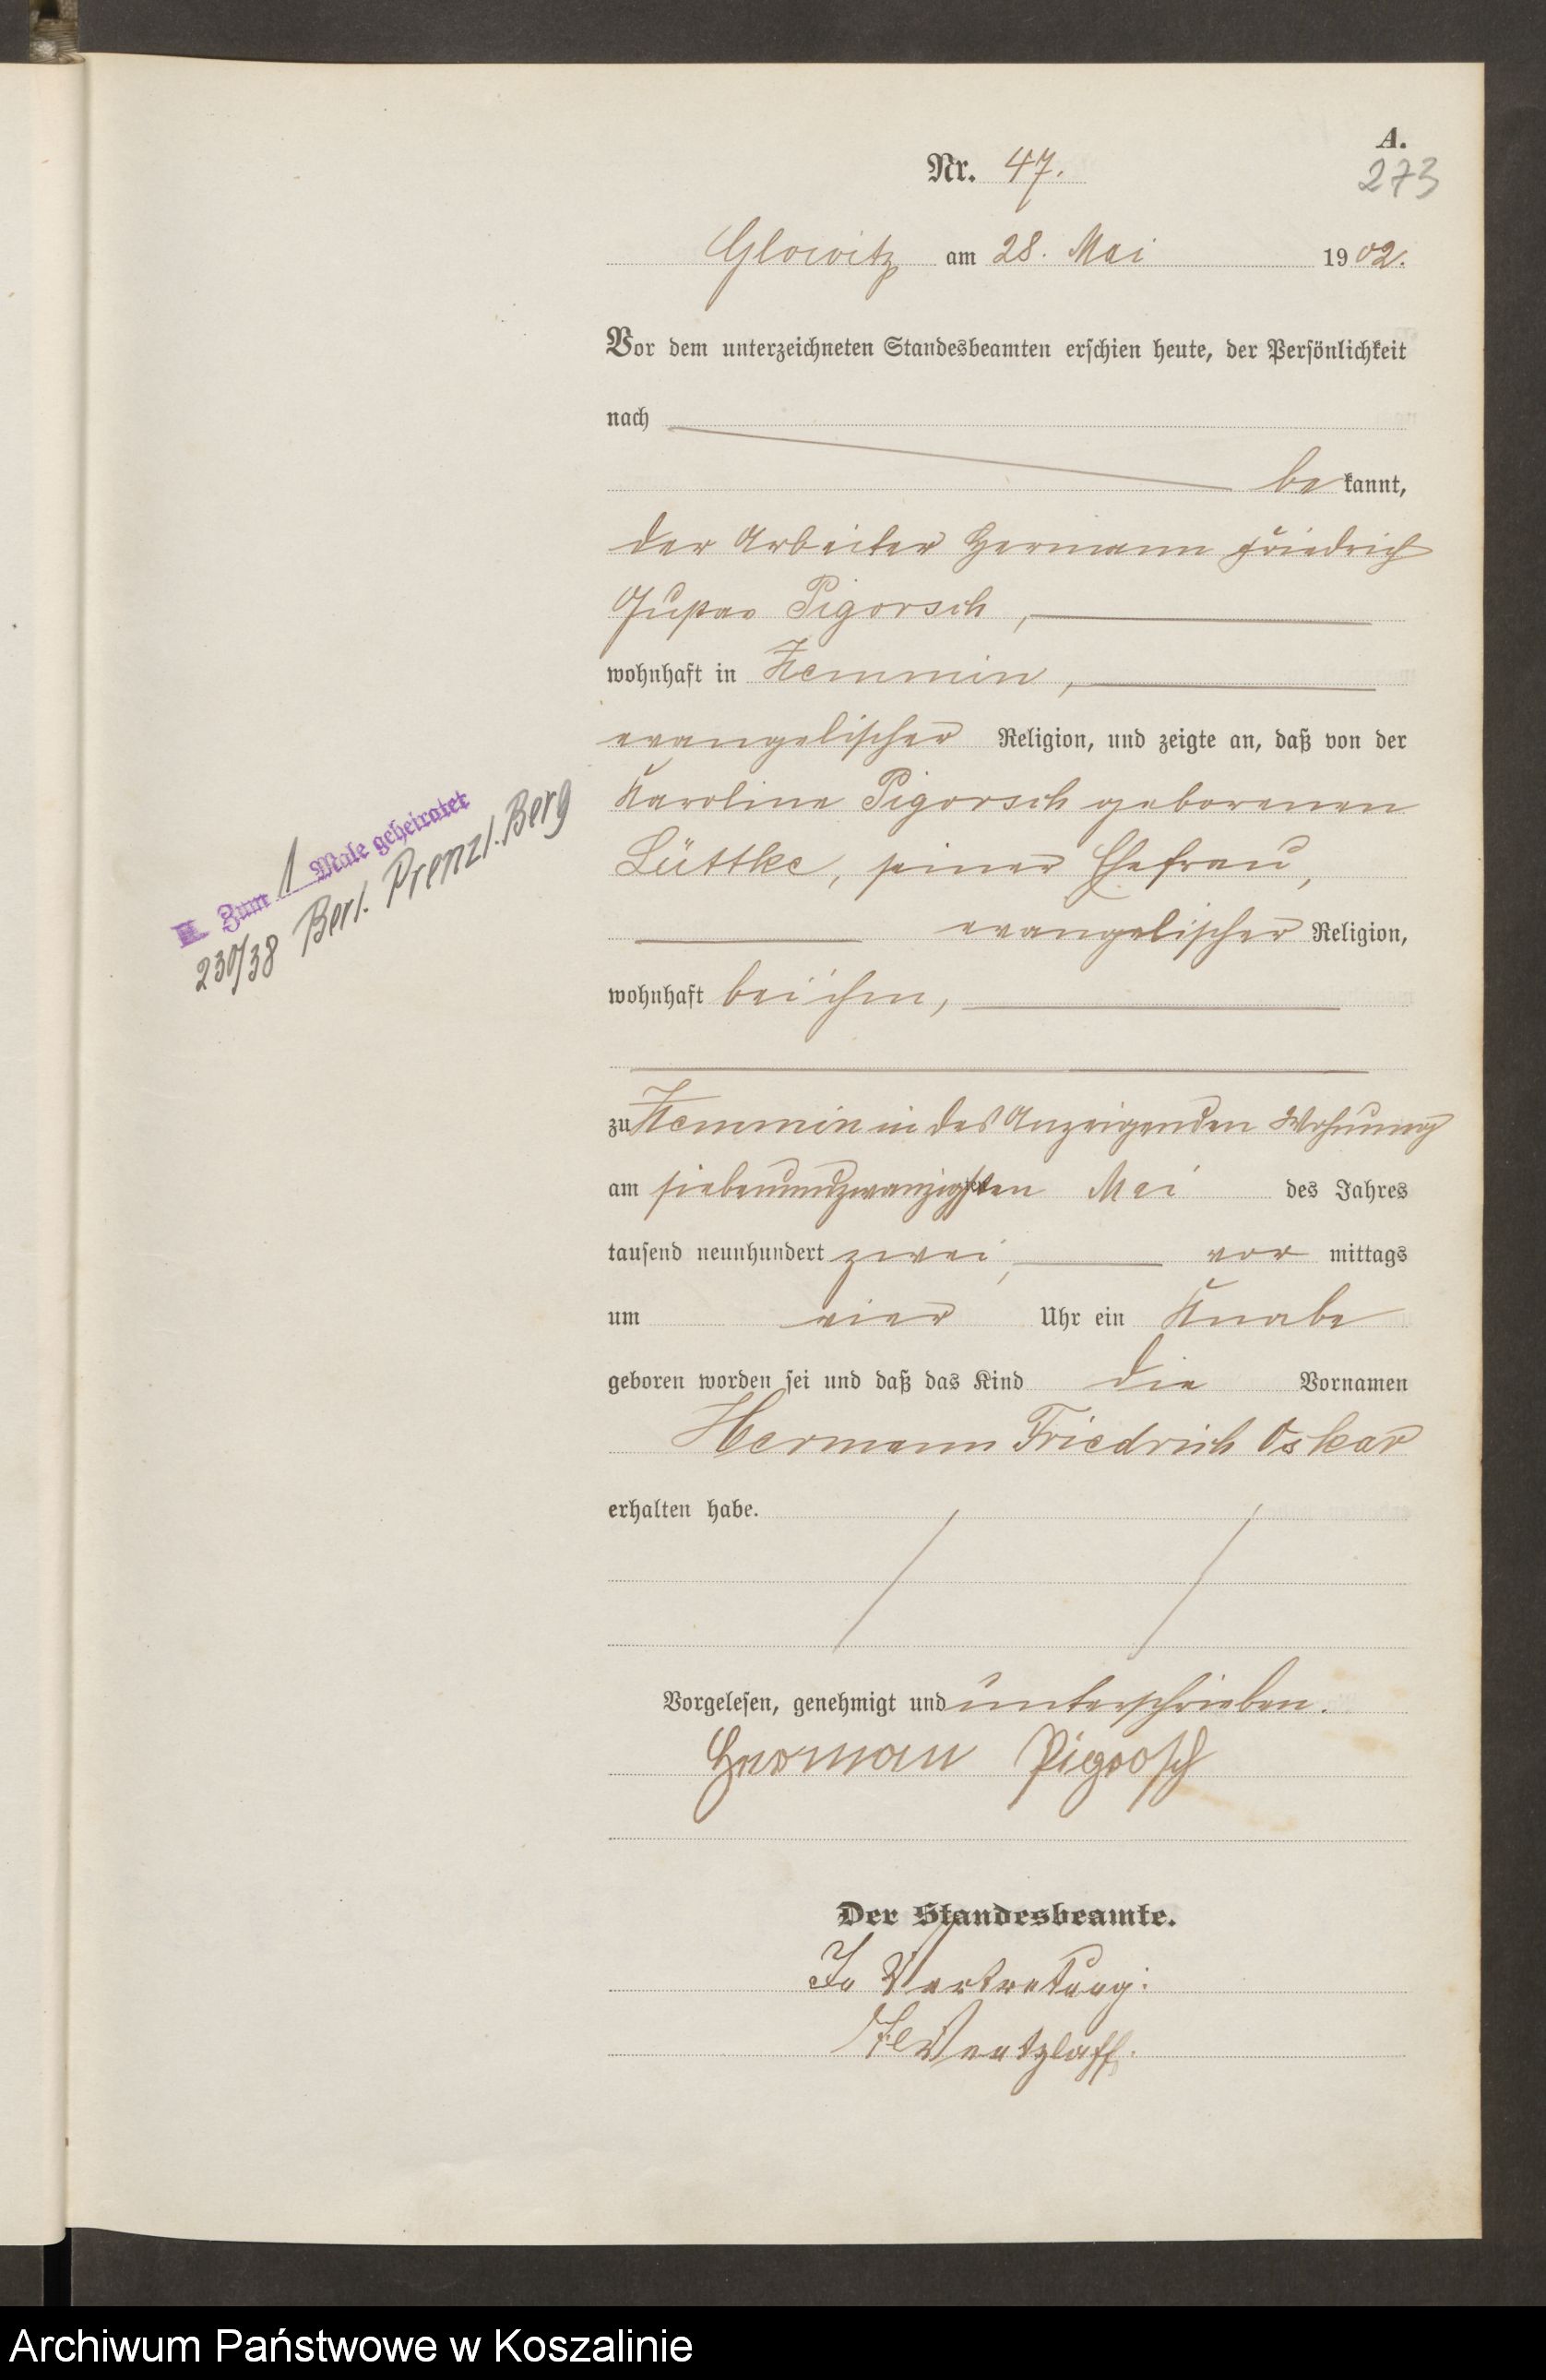 A.
273
Nr. 47.
Glowitz am 28. Mai 1902.
Vor dem unterzeichneten Standesbeamten erschien heute, der Persönlichkeit
nach
bekannt,
der Arbeiter Hermann Friedrich
Gustav Pigorsch,
wohnhaft in Zemmin,
evangelischer Religion, und zeigte an, daß von der
Karoline Pigorsch geborenen
Lüttke, seiner Ehefrau,
evangelischer Religion,
wohnhaft bei ihm,
zu Zemmin in des Anzeigenden Wohnung
am siebenundzwanzigsten Mai des Jahres
tausend neunhundert zwei, vor mittags
um vier Uhr ein Knabe
geboren worden sei und daß das Kind die Vornamen
Hermann Friedrich Oskar
erhalten habe.
Vorgelesen, genehmigt und unterschrieben.
Herman Pigorsch
Der Standesbeamte.
In Vertretung:
Wentzlaff.
Zum 1 Male geheiratet
230/38 Berl. Prenzl. Berg
Archiwum Państwowe w Koszalinie